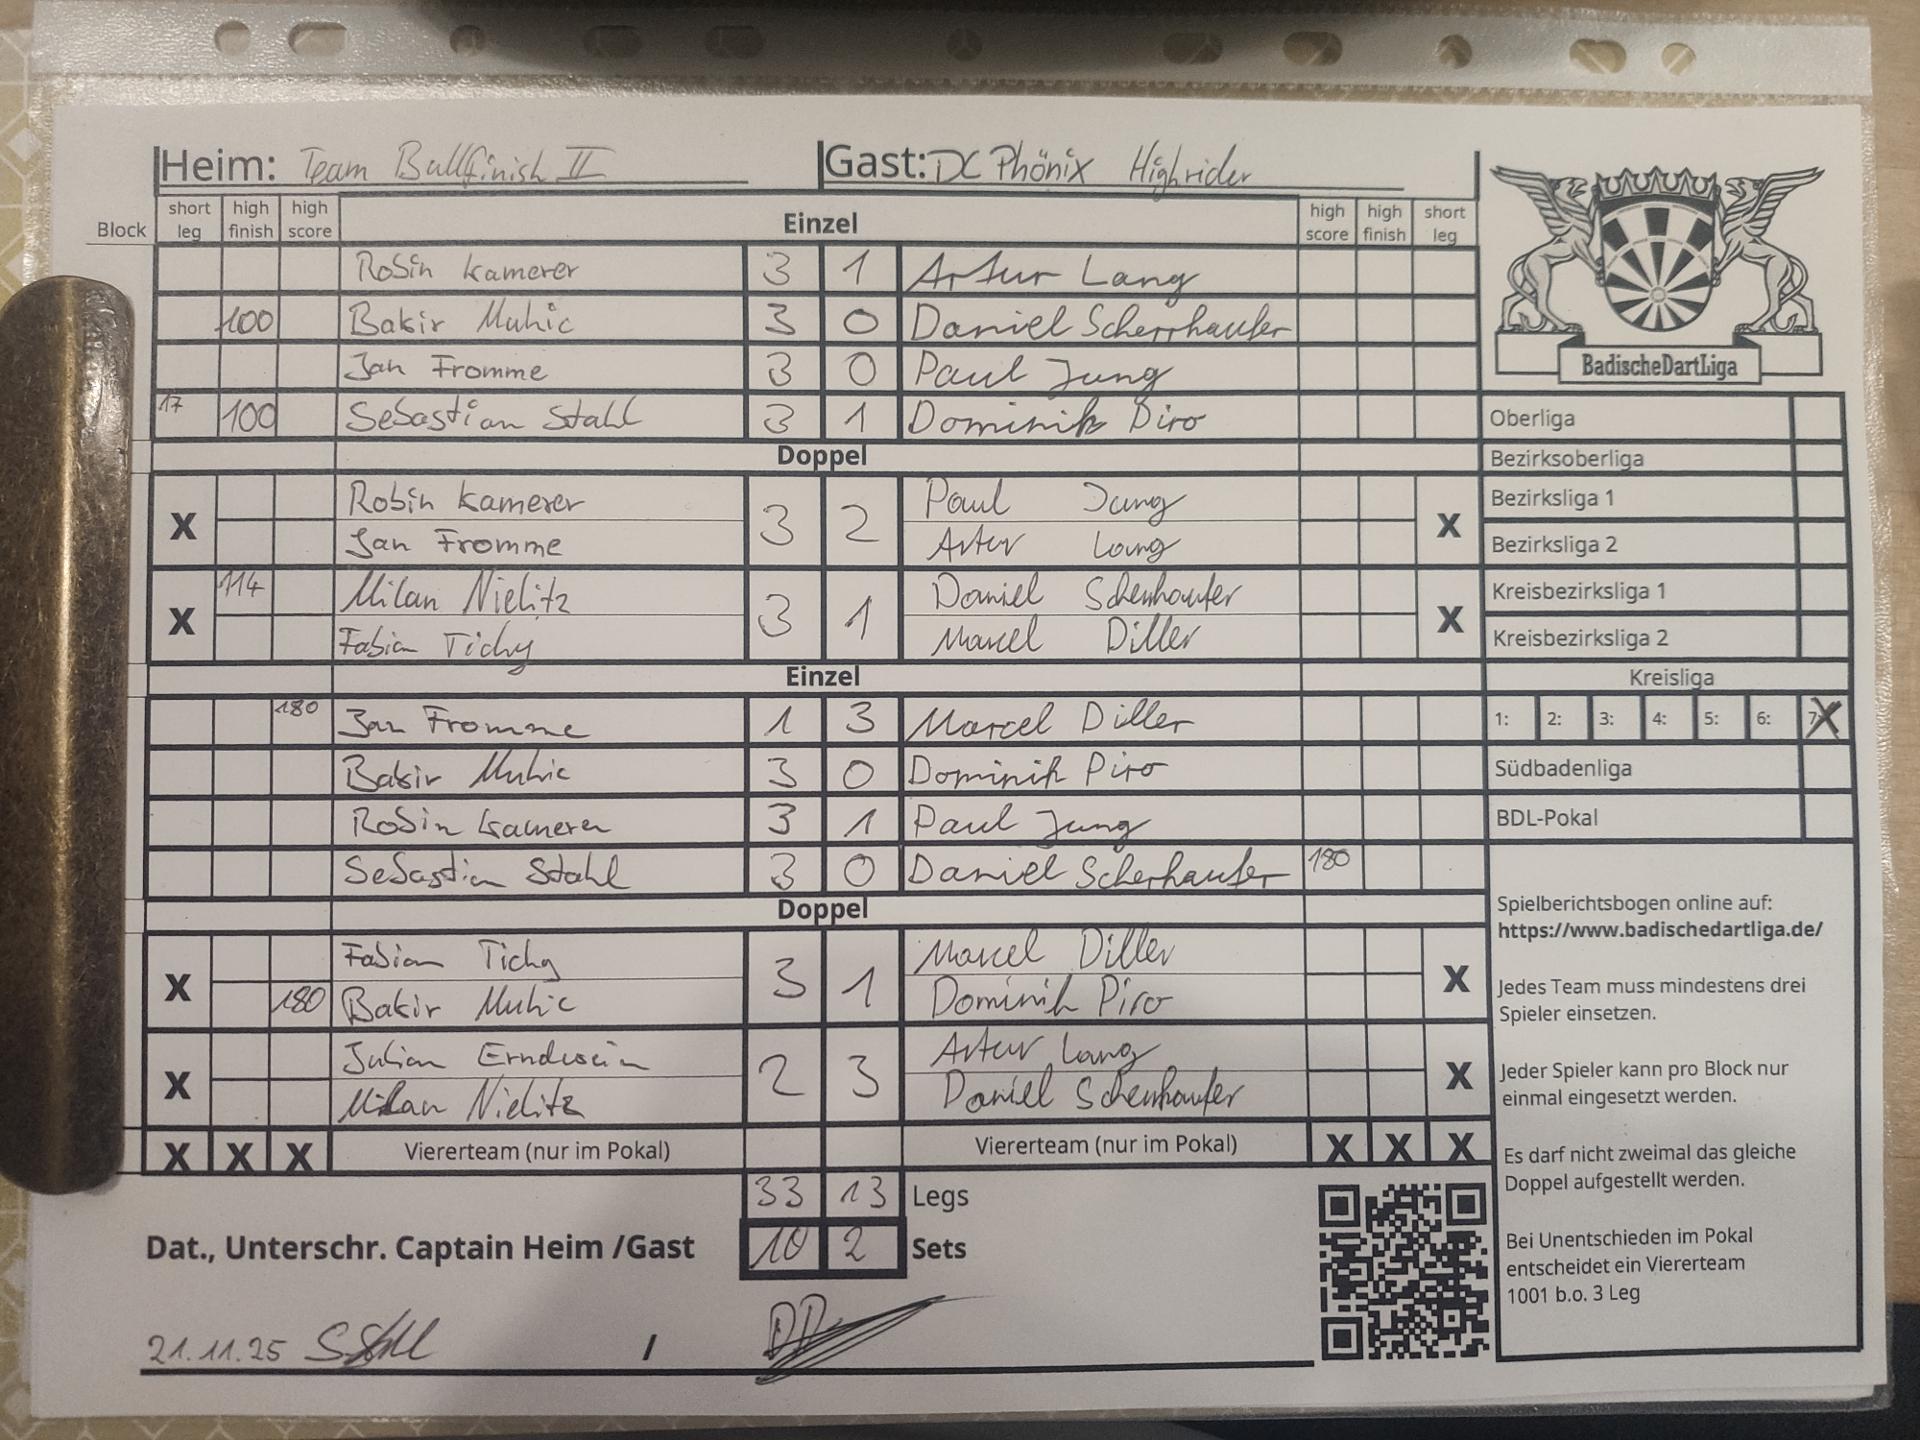 Heim: Team Bullfinish II Gast: DC Phönix Highrider
Block short leg high finish high score Einzel high score high finish short leg
Robin Kamerer 3 1 Artur Lang
100 Bakir Muhic 3 0 Daniel Scherrhaufer
Jan Fromme 3 0 Paul Jung
17 100 Sebastian Stahl 3 1 Dominik Piro
Doppel
X Robin Kamerer 3 2 Paul Jung X
Jan Fromme Artur Lang
X 114 Milan Nielitz 3 1 Daniel Scherrhaufer X
Fabian Tichy Marcel Diller
Einzel
180 Jan Fromme 1 3 Marcel Diller
Bakir Muhic 3 0 Dominik Piro
Robin Kamerer 3 1 Paul Jung
Sebastian Stahl 3 0 Daniel Scherhaufer 180
Doppel
X Fabian Tichy 3 1 Marcel Diller X
180 Bakir Muhic Dominik Piro
X Julian Erndwein 2 3 Artur Lang X
Milan Nielitz Daniel Scherrhaufer
X X X Vierterteam (nur im Pokal) Vierterteam (nur im Pokal) X X X
33 13 Legs
Dat., Unterschr. Captain Heim /Gast 10 2 Sets
21.11.25 /
BadischeDartLiga
Oberliga
Bezirksoberliga
Bezirksliga 1
Bezirksliga 2
Kreisbezirksliga 1
Kreisbezirksliga 2
Kreisliga
1: 2: 3: 4: 5: 6: 7: X
Südbadenliga
BDL-Pokal
Spielberichtsbogen online auf:
https://www.badischedartliga.de/
Jedes Team muss mindestens drei
Spieler einsetzen.
Jeder Spieler kann pro Block nur
einmal eingesetzt werden.
Es darf nicht zweimal das gleiche
Doppel aufgestellt werden.
Bei Unentschieden im Pokal
entscheidet ein Viererteam
1001 b.o. 3 Leg